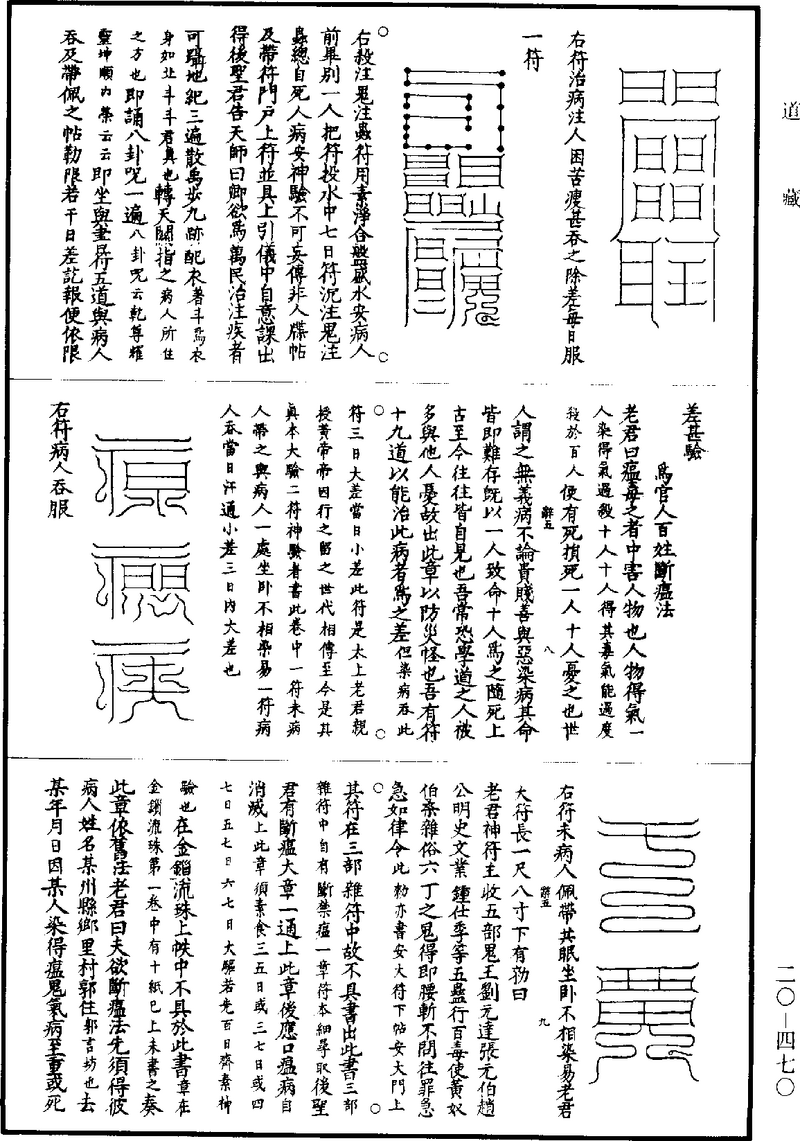 道藏
右符治病注人困苦瘦甚吞之除差每日服
一符
右殺注鬼注蟲符用素淨合盤盛水安病人
前畢別一人把符投水中七日符沉注鬼注
蟲總自死人病安神驗不可妄傳非人牒帖
及帶符門戶上符並具上引儀中自意課出
得後聖君告天師曰卿欲為萬民治注疾者
可躡地紀三遍散為步九跡配衣著斗為衣
身如北斗斗君真也轉天關指之病人所住
之方也即誦八卦呪一遍八卦呪云乾尊耀
靈坤順內營云云即坐與畫符五道與病人
吞及帶佩之帖勒限若干日差訖報便依限
差甚驗
為官人百姓斷瘟法
老君曰瘟毒之者中害人物也人物得氣一
人染得氣過殺十人十人得其毒氣能過度
殺於百人便有死損死一人十人憂之也世
人謂之無義病不論貴賤善與惡染病其命
皆即難存既以一人致命十人為之隨死上
古至今往往皆自見也吾常恐學道之人被
多與他人憂故出此章以防災人怪也吾有符
十九道以能治此病者為之差但染病吞此
符三日大差當日小差此符是太上老君親
授黃帝帝因行之留之世代相傳至今是其
真本大驗二符神驗者書此卷中一符未病
人帶之與病人一處坐臥不相染易一符病
人吞當日汗通小差三日內大差也
右符病人吞服
右符未病人佩帶其眠坐臥不相染易老君
大符長一尺八寸下有勑曰
老君神符主收五部鬼王劉元達張元伯趙
公明史文業鍾仕季等五蟲行百毒使黃奴
伯桑雜俗六丁之鬼得即腰斬不問往罪急
急如律令此勑亦書安大符下帖安大門上
其符在三部雜符中故不具書出此書三部
雜符中自有斷禁瘟一章符本細尋取後聖
君有斷瘟大章一通上此章後應口瘟病自
消滅上此章須素食三五日或三七日或四
七日五七日六七日大驗若先百日齊素神
驗也在金鎖流珠上帙中不具於此書章在
金鎖流珠第一卷中有十紙已上未書之奏
此章依舊法老君曰夫欲斷瘟法先須得彼
病人姓名某州縣鄉里村郭住郭言坊也去
某年月日因某人染得瘟鬼氣病至重或死
辭五
八
辭五
九
二〇—四七〇